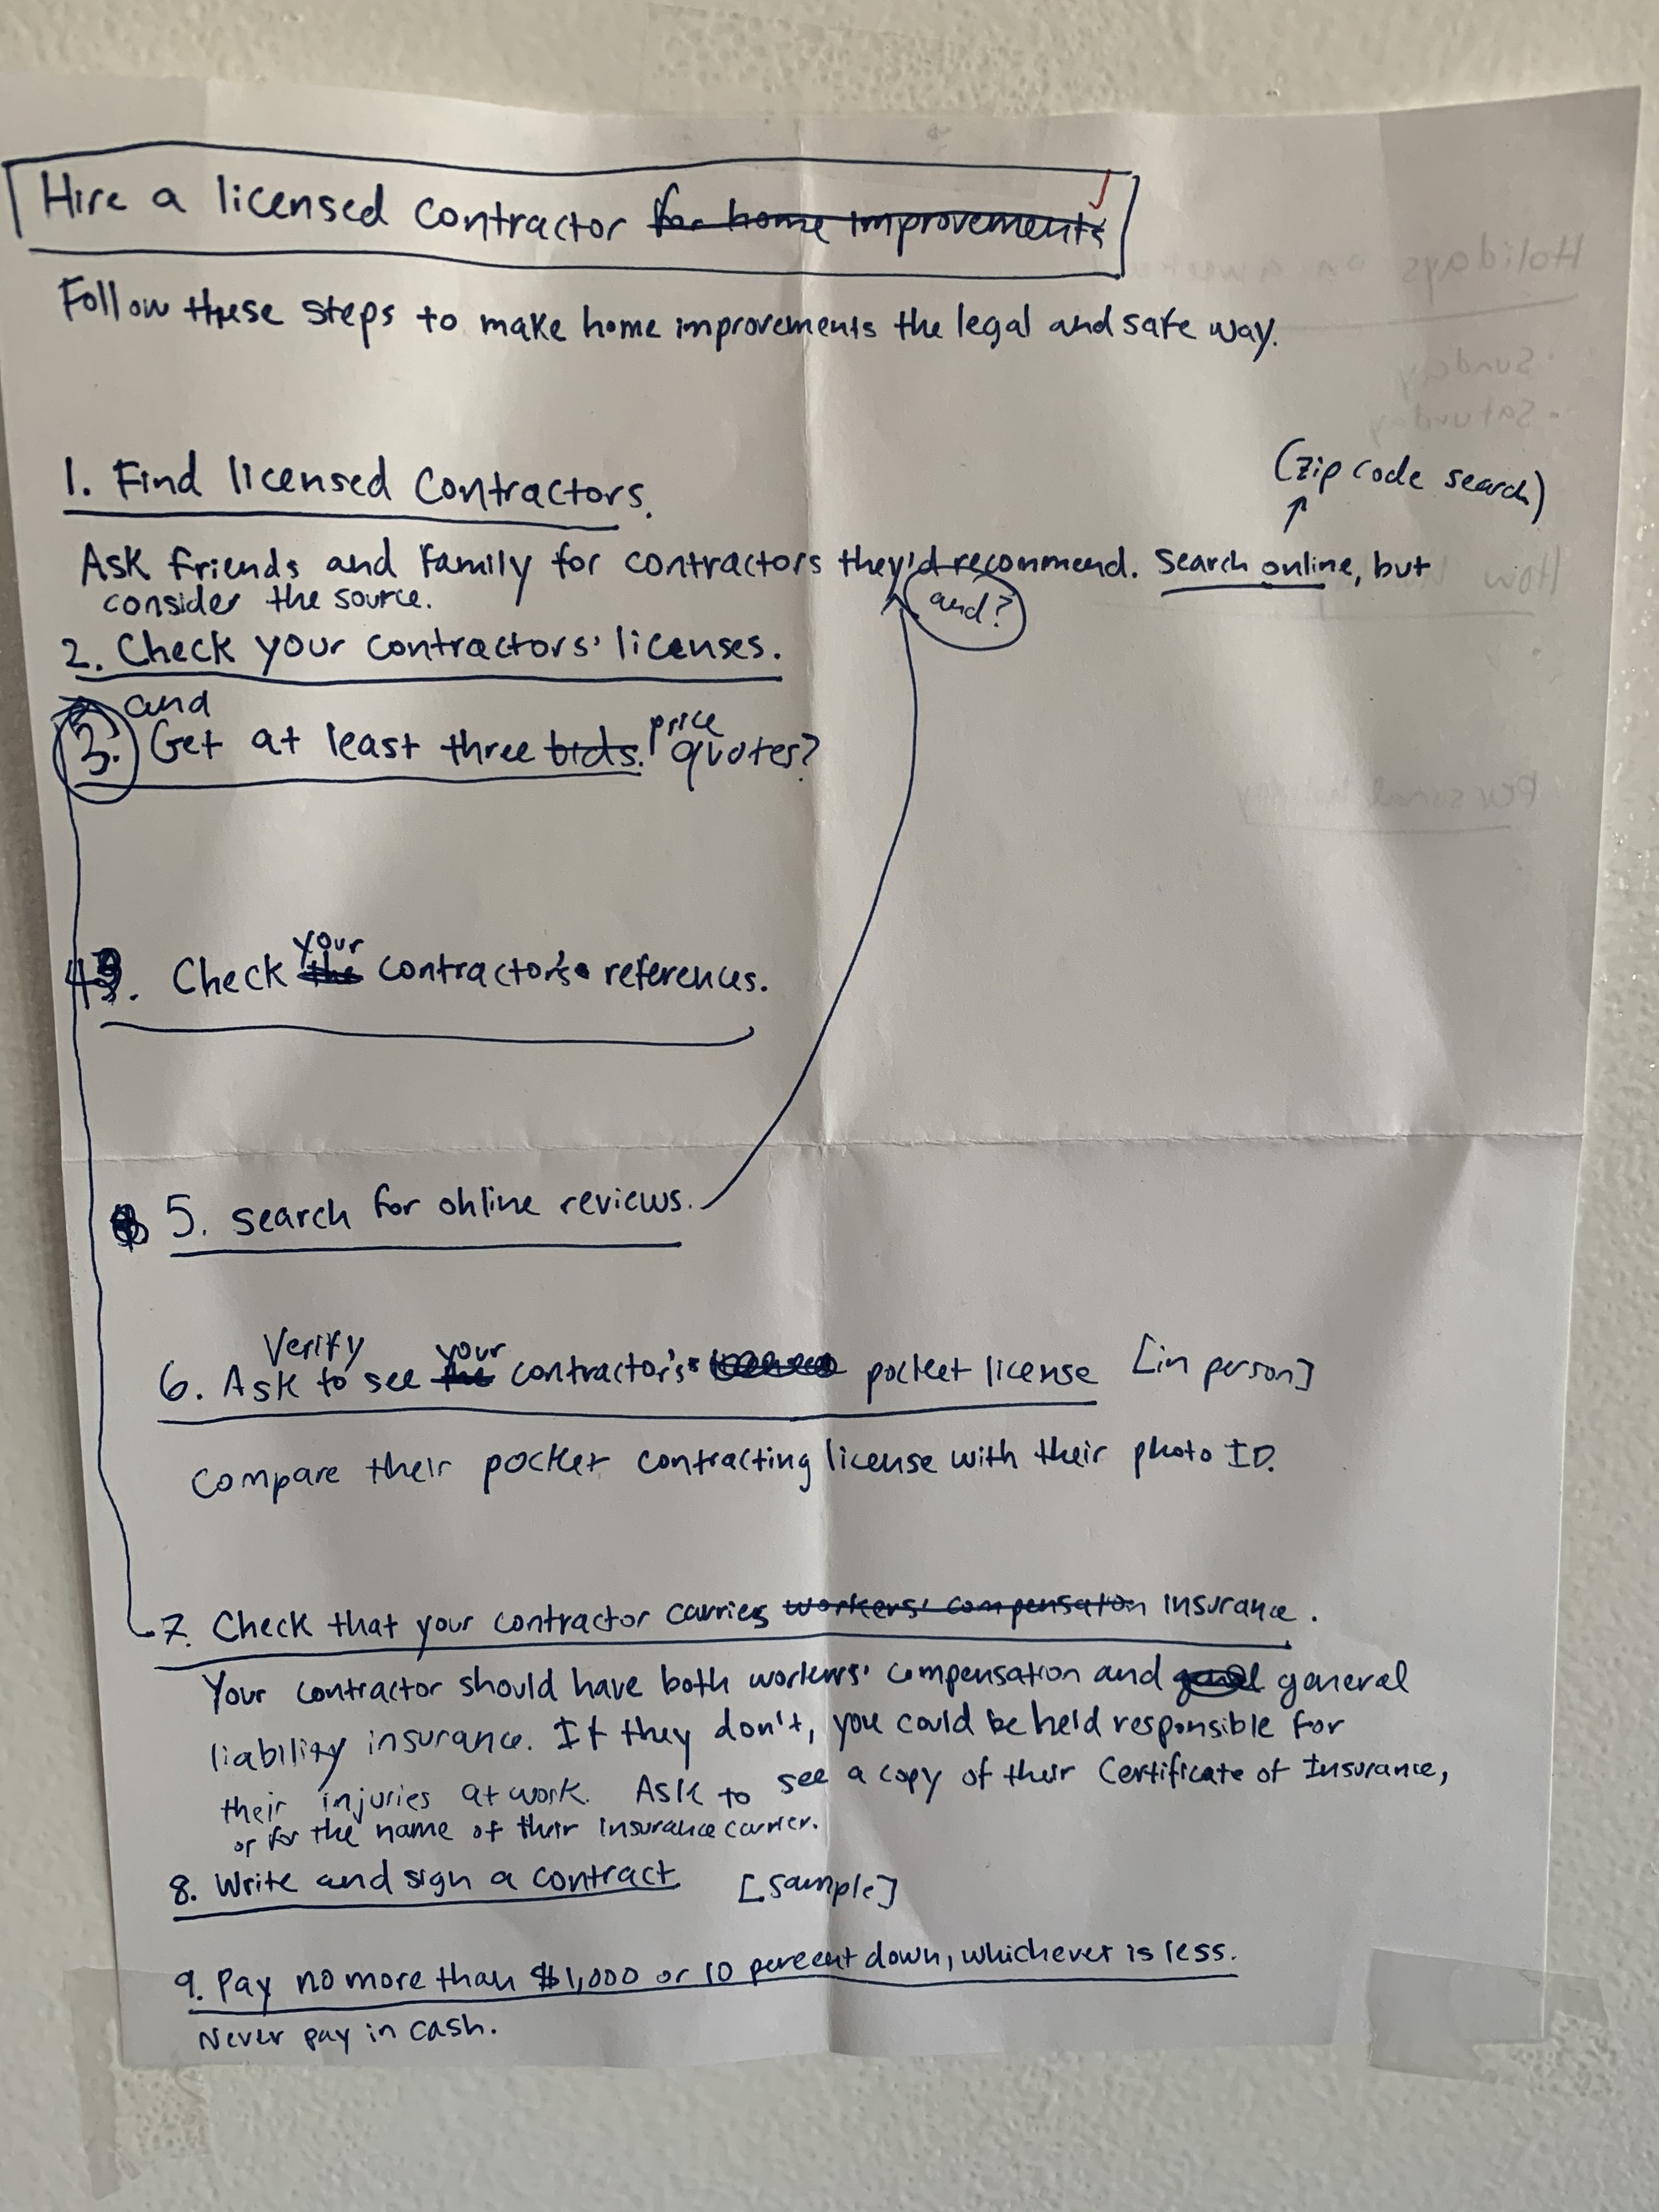 Hire a licensed contractor for home improvements
Follow these steps to make home improvements the legal and safe way.
1. Find licensed contractors.
(zip code search)
Ask friends and family for contractors they'd recommend. Search online, but
consider the source.
and?
2. Check your contractors' licenses.
and
3. Get at least three bids. price quotes?
your
4. Check the contractor's references.
5. Search for online reviews.
Verify your
6. Ask to see the contractor's pocket license [in person]
Compare their pocket contracting license with their photo ID.
7. Check that your contractor carries workers' compensation insurance.
Your contractor should have both workers' compensation and general
liability insurance. If they don't, you could be held responsible for
their injuries at work. Ask to see a copy of their Certificate of Insurance,
or for the name of their insurance carrier.
8. Write and sign a contract [sample]
9. Pay no more than $1,000 or 10 percent down, whichever is less.
Never pay in cash.
Holidays on a
Sunday
Saturday
How
Personal